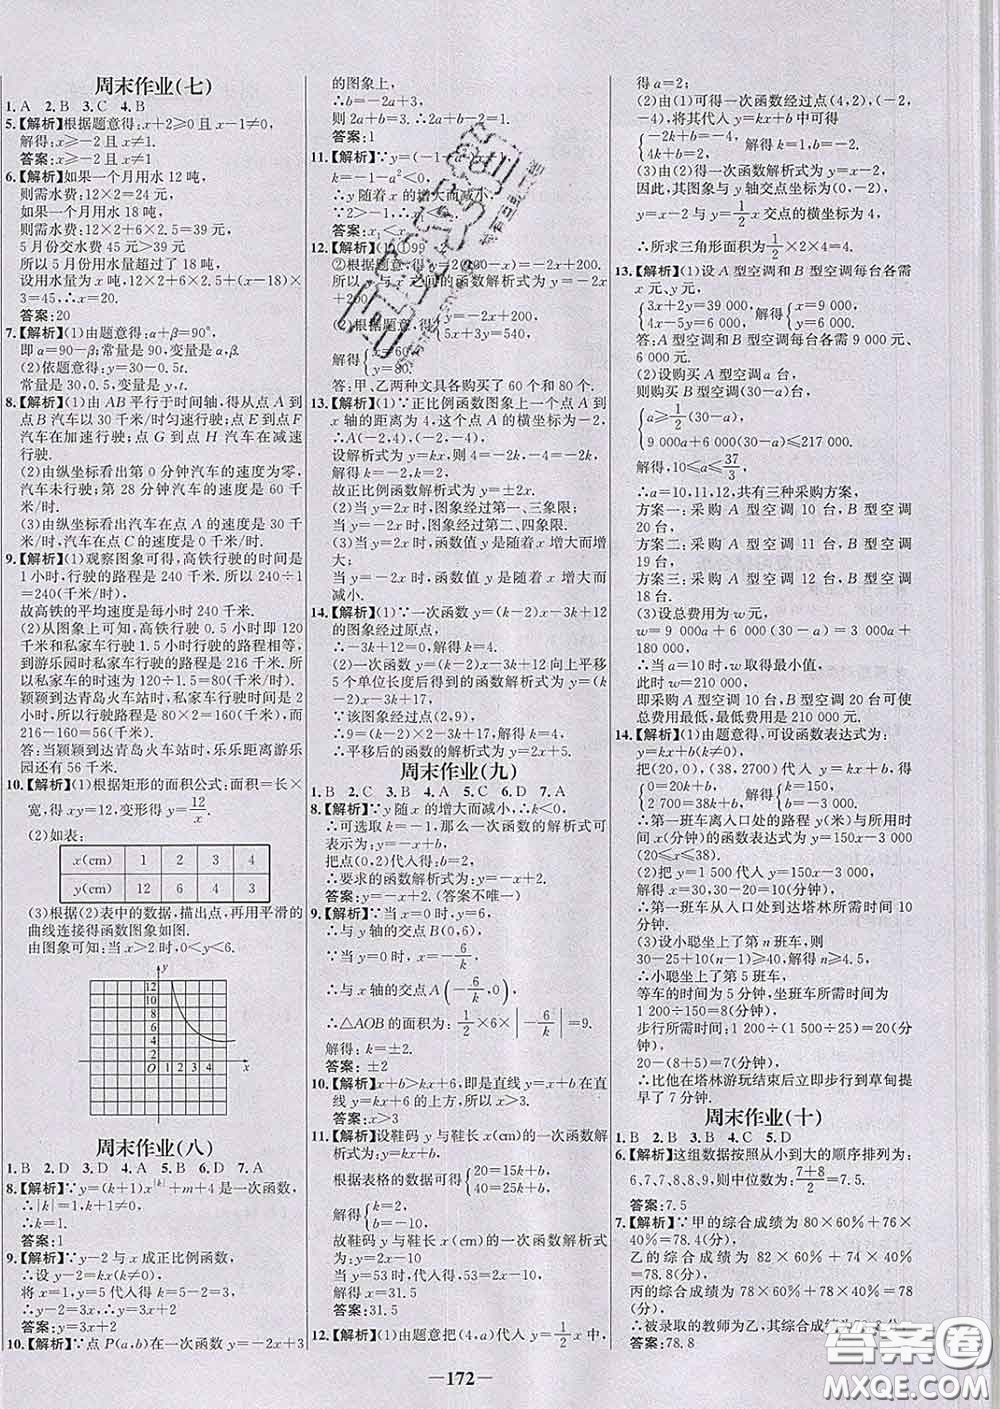 周末作业(七)
1.A 2.B 3.C 4.B
5.【解析】根据题意得:x+2≥0且x-1≠0,
解得:x≥-2且x≠1.
答案:x≥-2且x≠1
6.【解析】如果一个月用水12吨,
则需水费:12×2=24元,
如果一个月用水18吨,
则需水费:12×2+6×2.5=39元,
5月份交水费45元>39元
所以5月份用水量超过了18吨,
设用水量为x吨,12×2+6×2.5+(x-18)×
3=45,∴x=20.
答案:20
7.【解析】(1)由题意得:α+β=90°,
即α=90-β;常量是90,变量是α,β.
(2)依题意得:y=30-0.5t.
常量是30,0.5,变量是y,t.
8.【解析】(1)由AB平行于时间轴,得从点A到
点B汽车以30千米/时匀速行驶;点E到点F
汽车在加速行驶;点G到点H汽车在减速
行驶.
(2)由纵坐标看出第0分钟汽车的速度为零,
汽车未行驶;第28分钟汽车的速度为60千
米/时.
(3)由纵坐标看出汽车在点A的速度是30千
米/时,汽车在点C的速度为0千米/时.
9.【解析】(1)观察图象可得,高铁行驶的时间是
1小时,行驶的路程是240千米.所以240÷1
=240(千米/时).
故高铁的平均速度是每小时240千米.
(2)从图象上可知,高铁行驶0.5小时即120
千米和私家车行驶1.5小时行驶的路程相等,
到游乐园时私家车行驶的路程是216千米.所
以私家车速度是120÷1.5=80(千米/时).
颖颖到达青岛火车站时,私家车行驶的时间是
2小时,所以行驶路程是80×2=160(千米),
216-160=56(千米).
答:当颖颖到达青岛火车站时,乐乐距离游乐
园还有56千米.
10.【解析】(1)根据矩形的面积公式:面积=长×
宽,得xy=12,变形得y=12/x.
(2)如表:
x(cm) 1 2 3 4
y(cm) 12 6 4 3
(3)根据(2)表中的数据,描出点,再用平滑的
曲线连接得函数图象如图.
由图象可知:当x>2时,0<y<6.
y
12
10
8
6
4
2
O 1 2 3 4 x
周末作业(八)
1.B 2.D 3.D 4.A 5.B 6.D 7.A
8.【解析】∵y=(k+1)x^|k|+m+4是一次函数,
∴|k|=1,k+1≠0.
∴k=1.
答案:1
9.【解析】∵y-2与x成正比例函数,
∴设y-2=kx(k≠0),
将x=1,y=5代入得,k=5-2=3,
∴y-2=3x,∴y=3x+2.
答案:y=3x+2
10.【解析】∵点P(a,b)在一次函数y=-2x+3
的图象上,
∴b=-2a+3,
则2a+b=3.
答案:1
11.【解析】∵y=(-1-
k=-1-a²<0,
∴y随着x的增大而减小,
∵2>-1,∴x₁<x
答案:x₁<x
12.【解析】(1)①99 2
②根据题意得:y=2(100-x)=-2x+200,
所以y与x之间的函数解析式为y=-2x
+200
(2)根据题意,得{y=-2x+200, 5x+3y=540,
解得{x=60, y=80.
答:甲、乙两种文具各购买了60个和80个.
13.【解析】(1)∵正比例函数图象上一个点A到
x轴的距离为4,这个点A的横坐标为-2,
∴A(-2,4),(-2,-4),
设解析式为y=kx,则4=-2k,-4=-2k,
解得k=-2,k=2,
故正比例函数解析式为y=±2x.
(2)当y=2x时,图象经过第一、三象限;
当y=-2x时,图象经过第二、四象限.
(3)当y=2x时,函数值y随着x的增大而增
大;
当y=-2x时,函数值y随着x的增大而
减小.
14.【解析】(1)∵一次函数y=(k-2)x-3k+12
的图象经过原点,
∴-3k+12=0,∴k=4.
(2)一次函数y=(k-2)x-3k+12向上平移
5个单位长度后得到的函数解析式为y=(k-
2)x-3k+17,
∵该图象经过点(2,9),
∴9=(k-2)×2-3k+17,
∴k=4,
∴平移后的函数解析式为y=2x+5.
周末作业(九)
1.B 2.C 3.B 4.A 5.C 6.D 7.A
8.【解析】∵y随x的增大而减小,∴k<0,
∴可选取k=-1,那么一次函数的解析式可
表示为:y=-x+b,
把点(0,2)代入得:b=2,
∴要求的函数解析式为:y=-x+2.
答案:y=-x+2.(答案不唯一)
9.【解析】∵当x=0时,y=6,
∴与y轴的交点B(0,6),
∵当y=0时,x=-6/k,
∴与x轴的交点A(-6/k,0),
∴△AOB的面积为:1/2×6×|-6/k|=9.
解得:k=±2.
答案:±2
10.【解析】x+b>kx+6,即是直线y=x+b在直
线y=kx+6的上方,所以x>3.
答案:x>3
11.【解析】设鞋码y与鞋长x(cm)的一次函数解
析式为:y=kx+b(k≠0),
根据表格的数据可得:{20=15k+b, 22=16k+b,
解得:{k=2, b=-10.
故鞋码y与鞋长x(cm)的一次函数解析式为:
y=2x-10.
当y=53时,代入得53=2x-10,
解得x=31.5
答案:31.5
12.【解析】(1)由题意把(4,a)代入y=1/2x中,
得a=2;
(2)由(1)可得一次函数经过点(4,2),(-2,
-4),将其代入y=kx+b中可得:
{-2k+b=-4, 4k+b=2,解得k=1,b=-2.
(3)由(2)可得一次函数解析式为y=x-2,
因此,其图象与y轴交点坐标为(0,-2).
又因为y=x-2与y=1/2x交点的横坐标为4,
∴所求三角形面积为1/2×2×4=4.
13.【解析】(1)设A型空调和B型空调每台各需
x元、y元,
{3x+2y=39 000, 4x-5y=6 000,解得{x=9 000, y=6 000,
答:A型空调和B型空调每台各需9 000元,
6 000元.
(2)设购买A型空调a台,则购买B型空调
(30-a)台,
{a≥1/2(30-a), 9 000a+6 000(30-a)≤217 000.
解得,10≤a≤37/3
∴a=10,11,12,共有三种采购方案,
方案一:采购A型空调10台,B型空调
20台,
方案二:采购A型空调11台,B型空调
19台,
方案三:采购A型空调12台,B型空调
18台;
(3)设总费用为w元,
w=9 000a+6 000(30-a)=3 000a+
180 000,
∴当a=10时,w取得最小值,
此时w=210 000,
即采购A型空调10台,B型空调20台可使
总费用最低,最低费用是210 000元.
14.【解析】(1)由题意得,可设函数表达式为:
y=kx+b(k≠0).
把(20,0),(38,2700)代入y=kx+b,得
{0=20k+b, 2700=38k+b,解得{k=150, b=-3 000,
∴第一班车离入口处的路程y(米)与所用时间
x(分钟)的函数表达式为y=150x-3 000
(20≤x≤38).
(2)把y=1 500代入y=150x-3 000,
解得x=30,30-20=10(分钟),
∴第一班车从入口处到达塔林所需时间10
分钟.
(3)设小聪坐上了第n班车,则
30-25+10(n-1)≥40,解得n≥4.5,
∴小聪坐上了第5班车.
等车的时间为5分钟,坐班车所需时间为
1 200÷150=8(分钟),
步行所需时间:1 200÷(1 500÷25)=20(分钟),
20-(8+5)=7(分钟),
∴比他在塔林游玩结束后立即步行到草甸提
早了7分钟.
周末作业(十)
1.B 2.B 3.B 4.C 5.D
6.【解析】这组数据按照从小到大的顺序排列为:
6,7,7,8,8,9,则中位数为:(7+8)/2=7.5.
答案:7.5
7.【解析】∵甲的综合成绩为80×60%+76×
40%=78.4(分),
乙的综合成绩为82×60%+74×40%
=78.8(分),
丙的综合成绩为78×60%+78×40%=78
(分),
∴被录取的教师为乙,其综合成绩为78.8分.
答案:78.8
—172—
答案圈
MXQE.COM